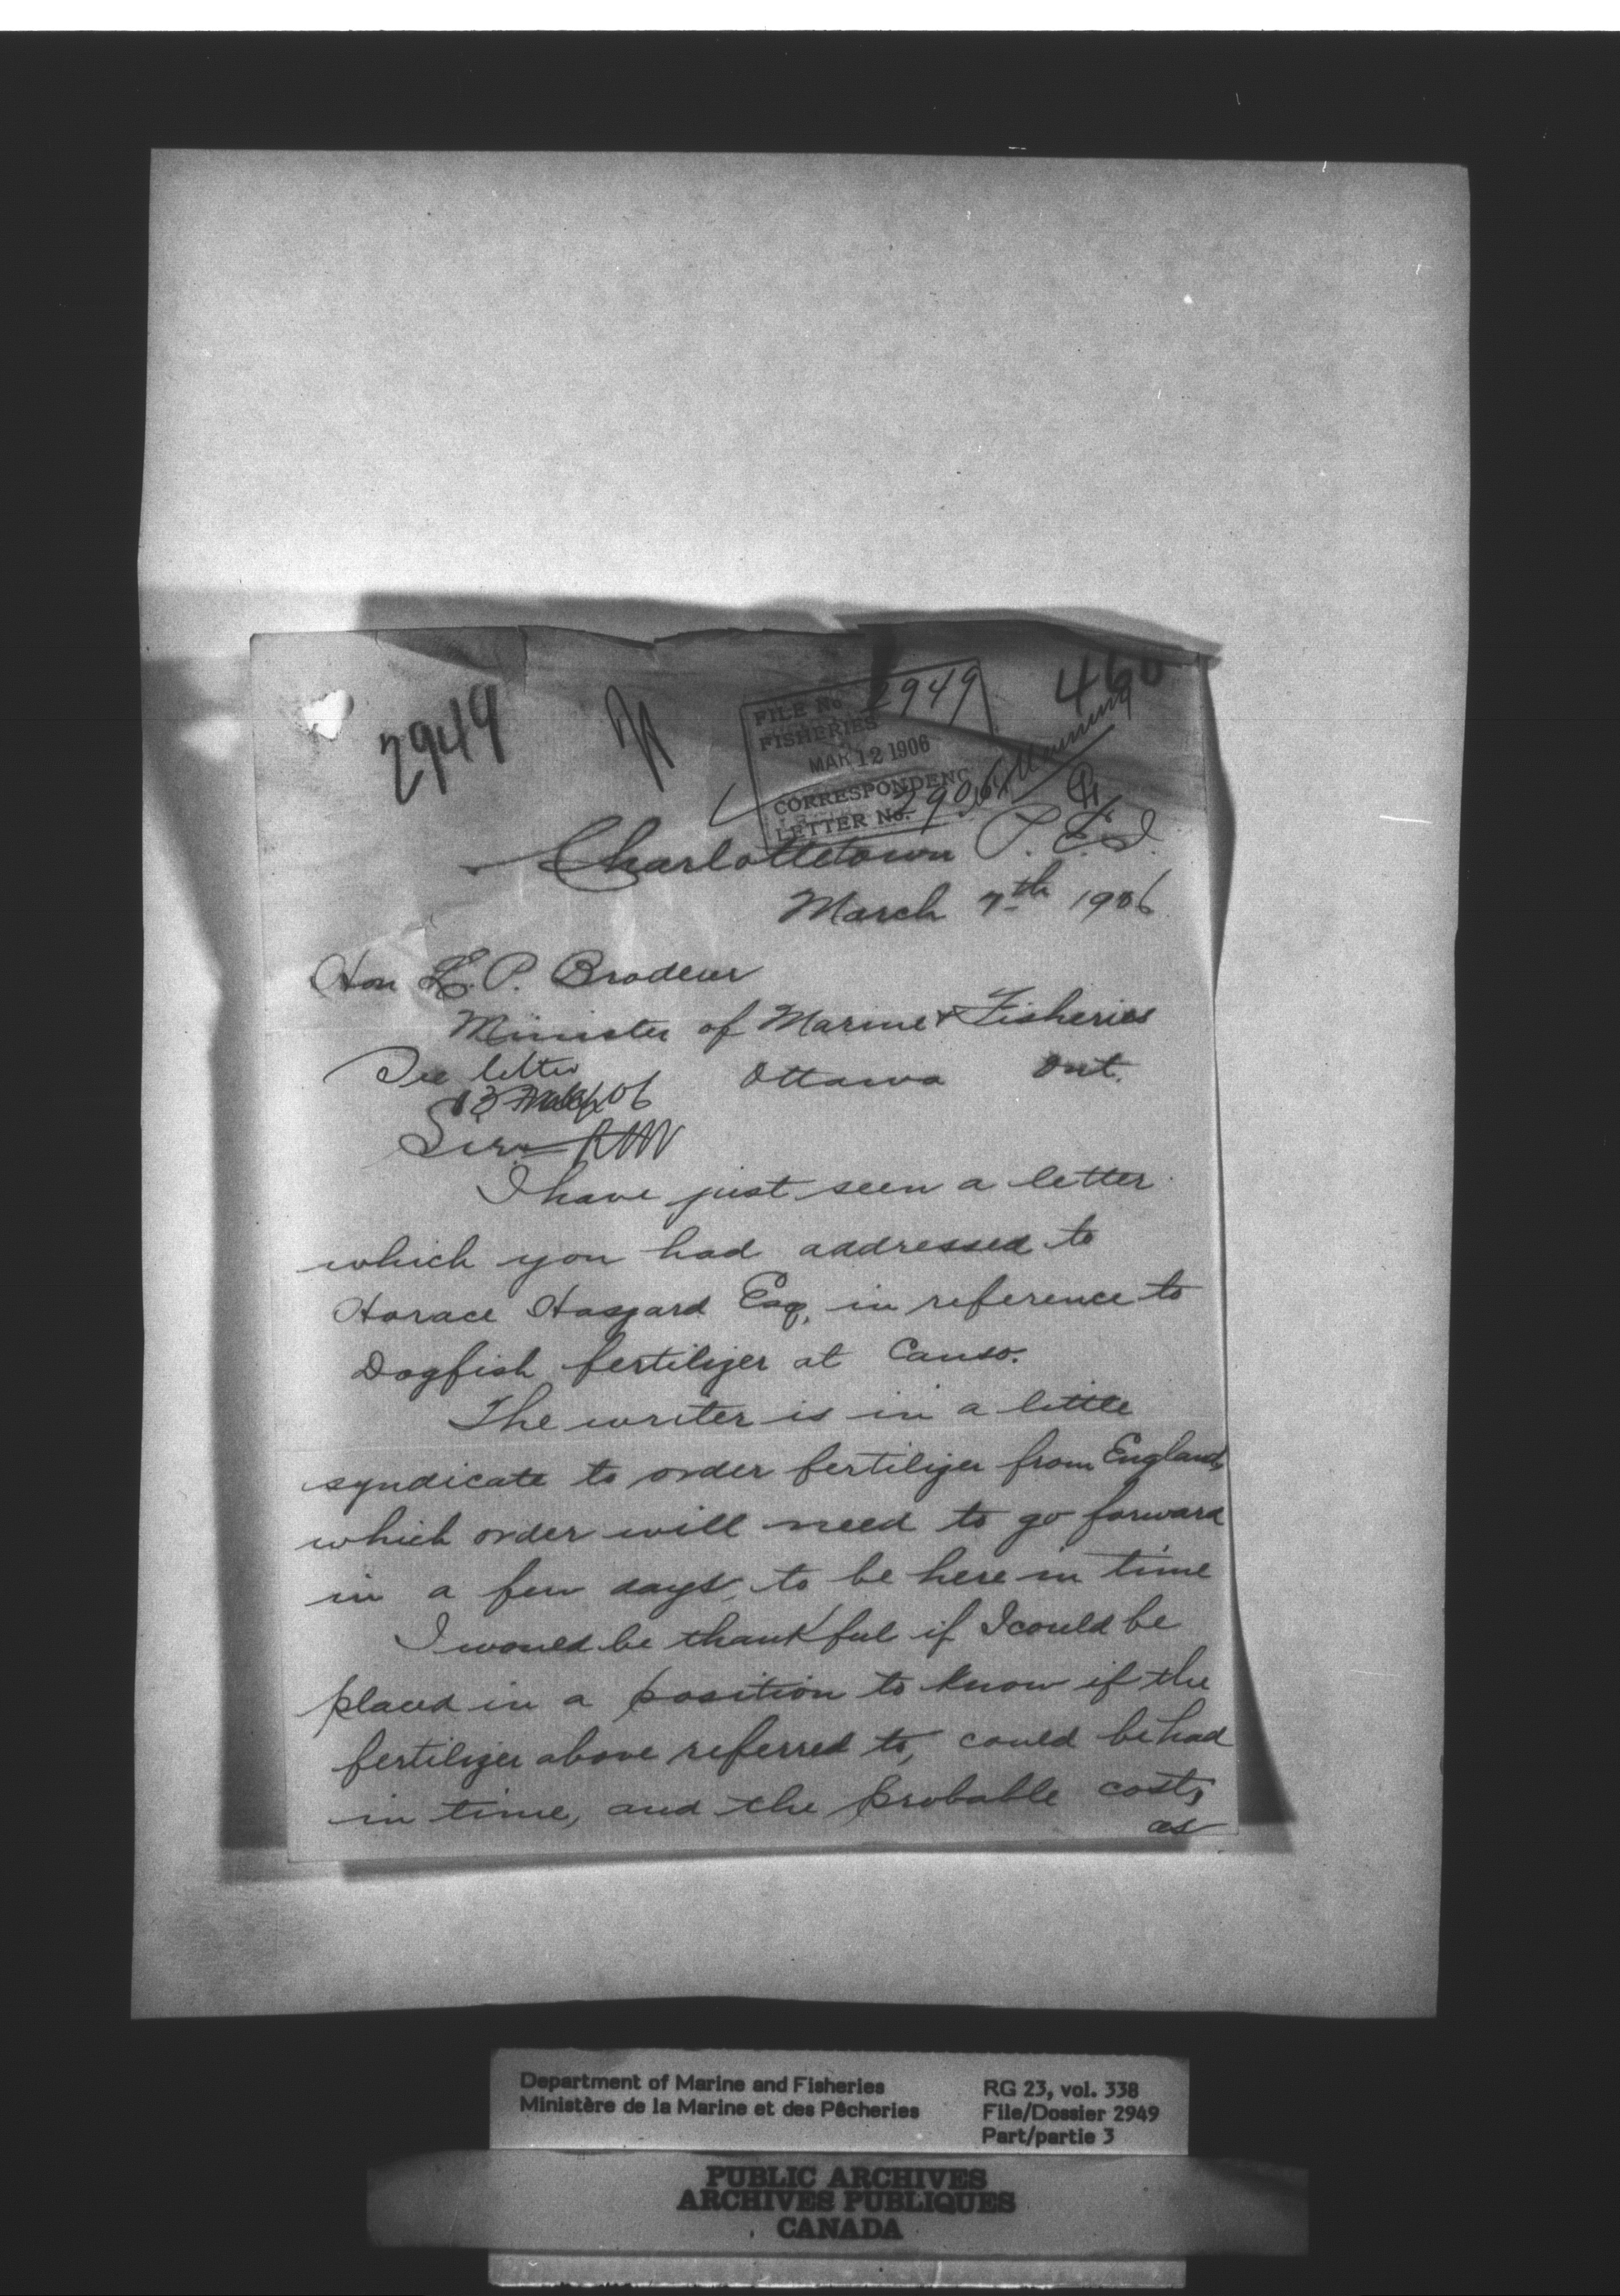 2949
460
FILE No. 2949
FISHERIES
MAR 12 1906
CORRESPONDENC
LETTER No.
Charlottetown P.E.I.
March 7th 1906
Hon L. P. Brodeur
Minister of Marine & Fisheries
See letter
Ottawa Ont.
13 March/06
Sir
I have just seen a letter
which you had addressed to
Horace Haszard Esq, in reference to
Dogfish fertilizer at Canso.
The writer is in a little
syndicate to order fertilizer from England,
which order will need to go forward
in a few days to be here in time
I would be thankful if I could be
placed in a position to know if the
fertilizer above referred to, could be had
in time, and the probable cost,
as
Department of Marine and Fisheries
Ministère de la Marine et des Pêcheries
RG 23, vol. 338
File/Dossier 2949
Part/partie 3
PUBLIC ARCHIVES
ARCHIVES PUBLIQUES
CANADA